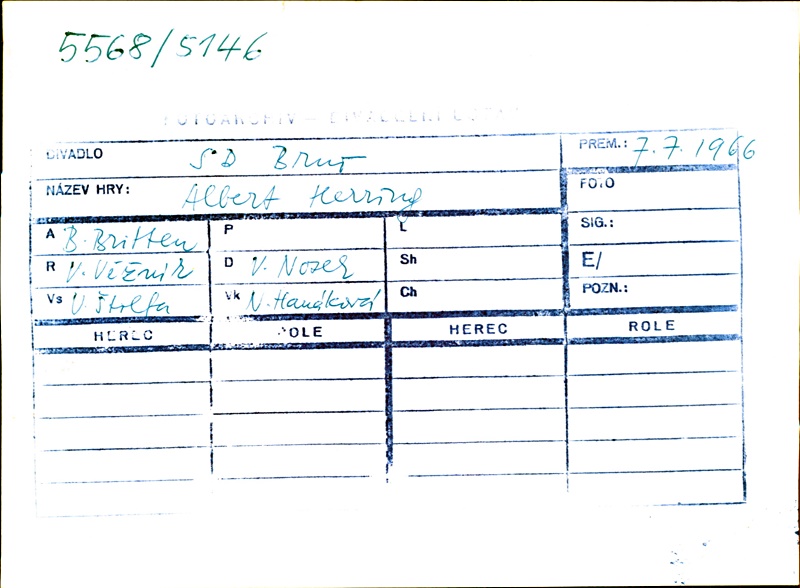 5568/5146
FOTOARCHIV – DIVADELNÍ ÚSTAV
DIVADLO SD Brno PREM.: 7.7.1966
NÁZEV HRY: Albert Herring FOTO
A B. Britten P L SIG.:
R V. Věžník D V. Nosek Sh E/
Vs V. Štolfa Vk N. Hanáková Ch POZN.:
HEREC ROLE HEREC ROLE